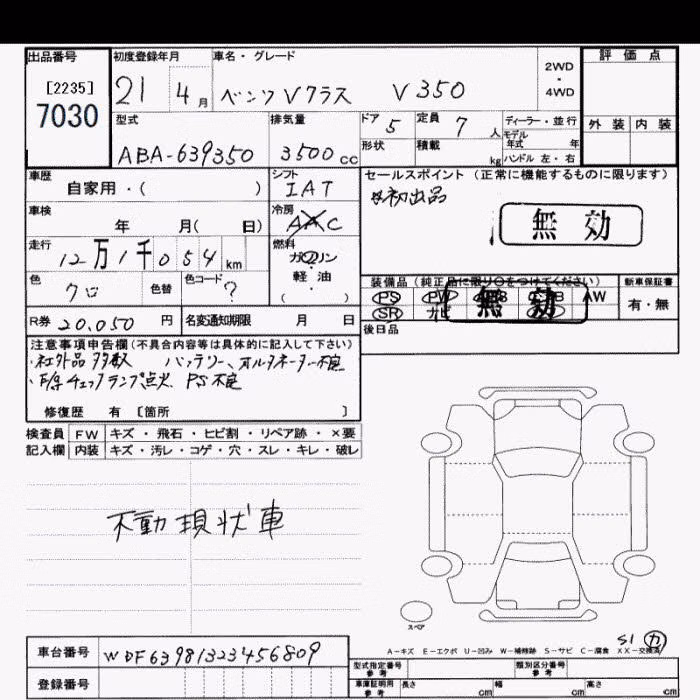 出品番号 初度登録年月 車名・グレード 2WD・4WD 評価点
[2235]
7030
21 4月 ベンツVクラス V350
型式 排気量 ドア 5 定員 7人 ディーラー・並行 外装 内装
モデル年式 年
ABA-639350 3500cc 形状 積載 kg ハンドル 左・右
車歴 シフト セールスポイント (正常に機能するものに限ります)
自家用・( ) IAT 初出品
車検 冷房 無効
年 月( 日) AAC
走行 燃料
12万1千054km ガソリン・軽油
( )
装備品 (純正品に限り〇をつけてください) 新車保証書
色 色替 色コード
クロ ?
PS PW 無効 AW 有・無
SR ナビ
R券 20,050円 名変通知期限 月 日 後日品
注意事項申告欄(不具合内容等は具体的に記入して下さい)
・社外品多数 バッテリー、オルタネーター不良
・F/序チェックランプ点火、PS不良
修復歴 有 [箇所 ]
検査員 FW キズ・飛石・ヒビ割・リペア跡・×要
記入欄 内装 キズ・汚レ・コゲ・穴・スレ・キレ・破レ
不動現状車
スペア
S1 カ
A-キズ E-エクボ U-凹み W-補修跡 S-サビ C-腐食 XX-交換済
車台番号 WDF63981323456809
型式指定番号 参考 類別区分番号 参考
登録番号
車庫証明用 参考 長さ cm 幅 cm 高さ cm